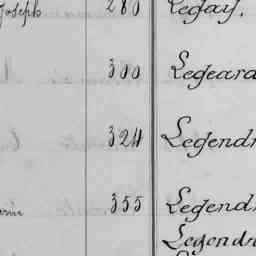 Joseph 280 Legay,
300 Legeard
324 Legendr
355 Legendr
Legendr